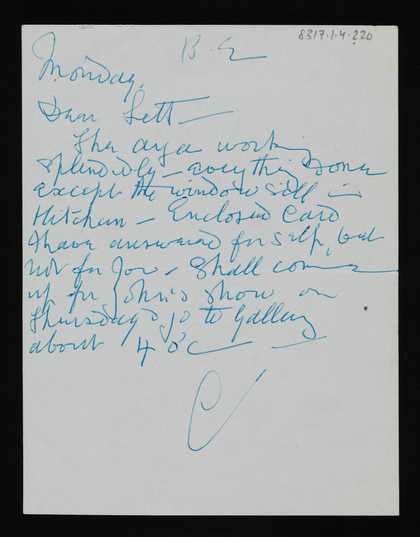 8317.1.4.220
B.E
Monday.
Dear Lett —
The aga working
splendidly — everything done
except the window sill in
Kitchen — Enclosed Card
I have answered for self, but
not for you — Shall come
up for John's show on
Thursday & go to Gallery
about 4 oC —
C